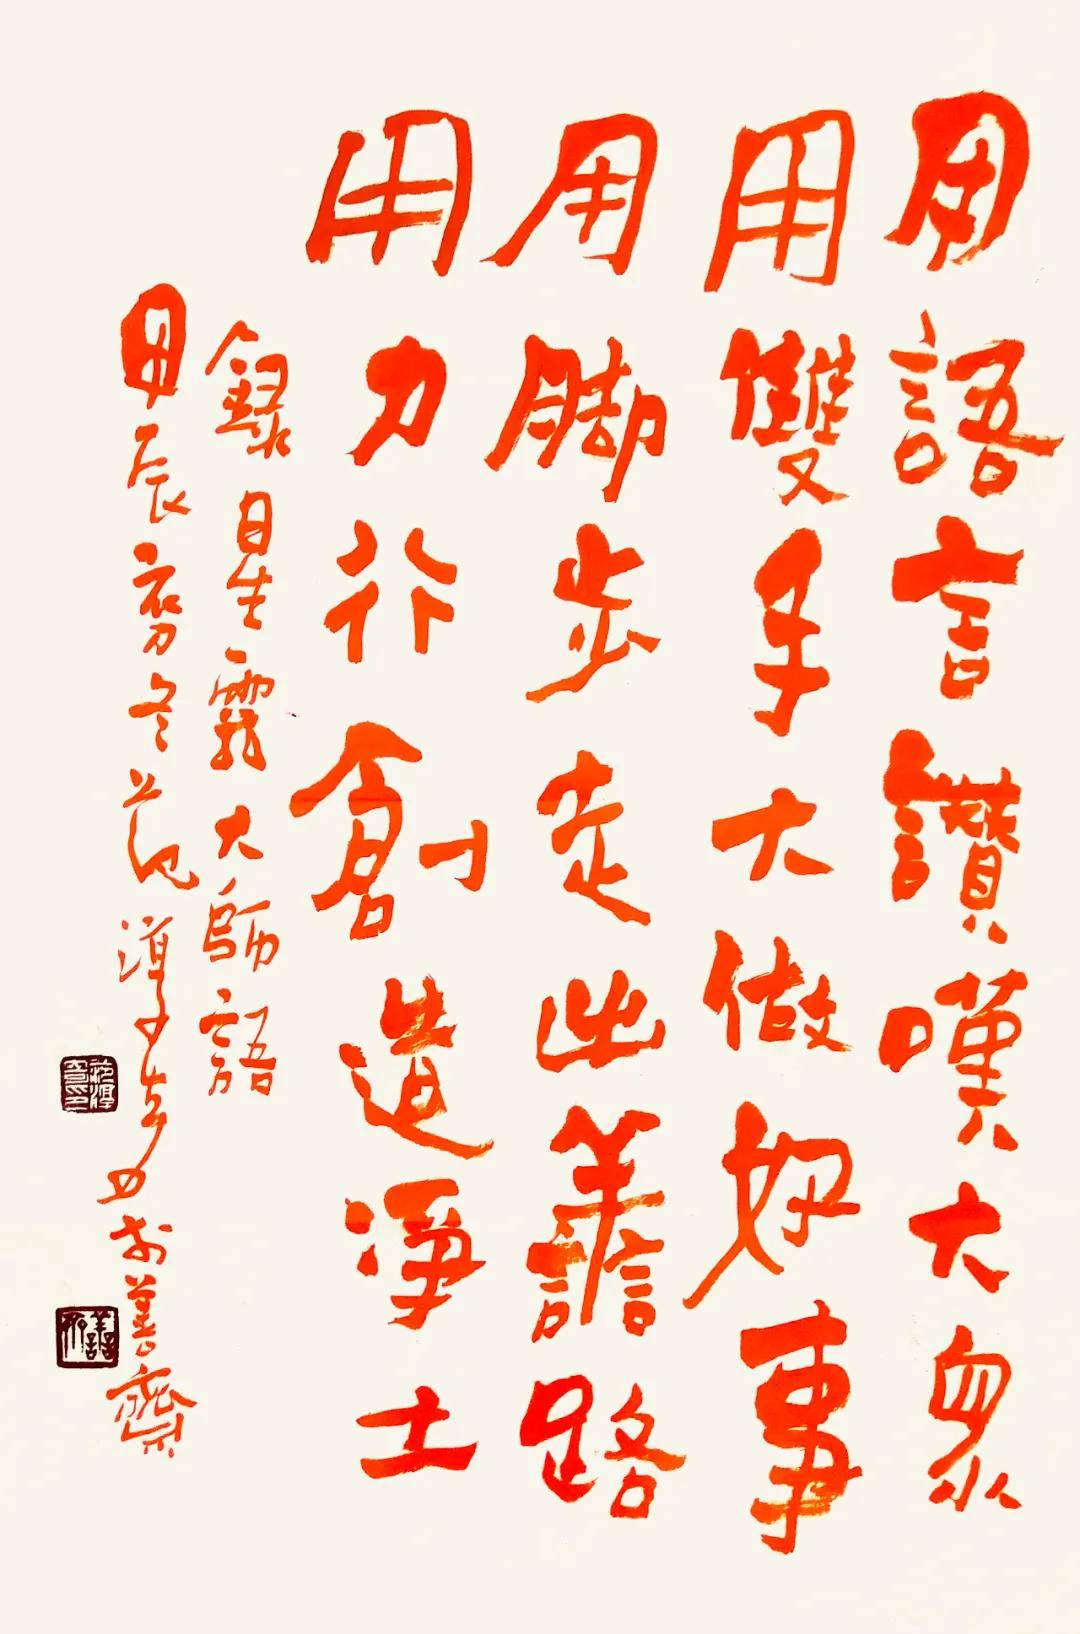 用語言讚嘆大眾
用雙手大做好事
用脚步走出譱路
用力行創造淨土
錄星雲大師語
甲辰初冬范淳於善齋